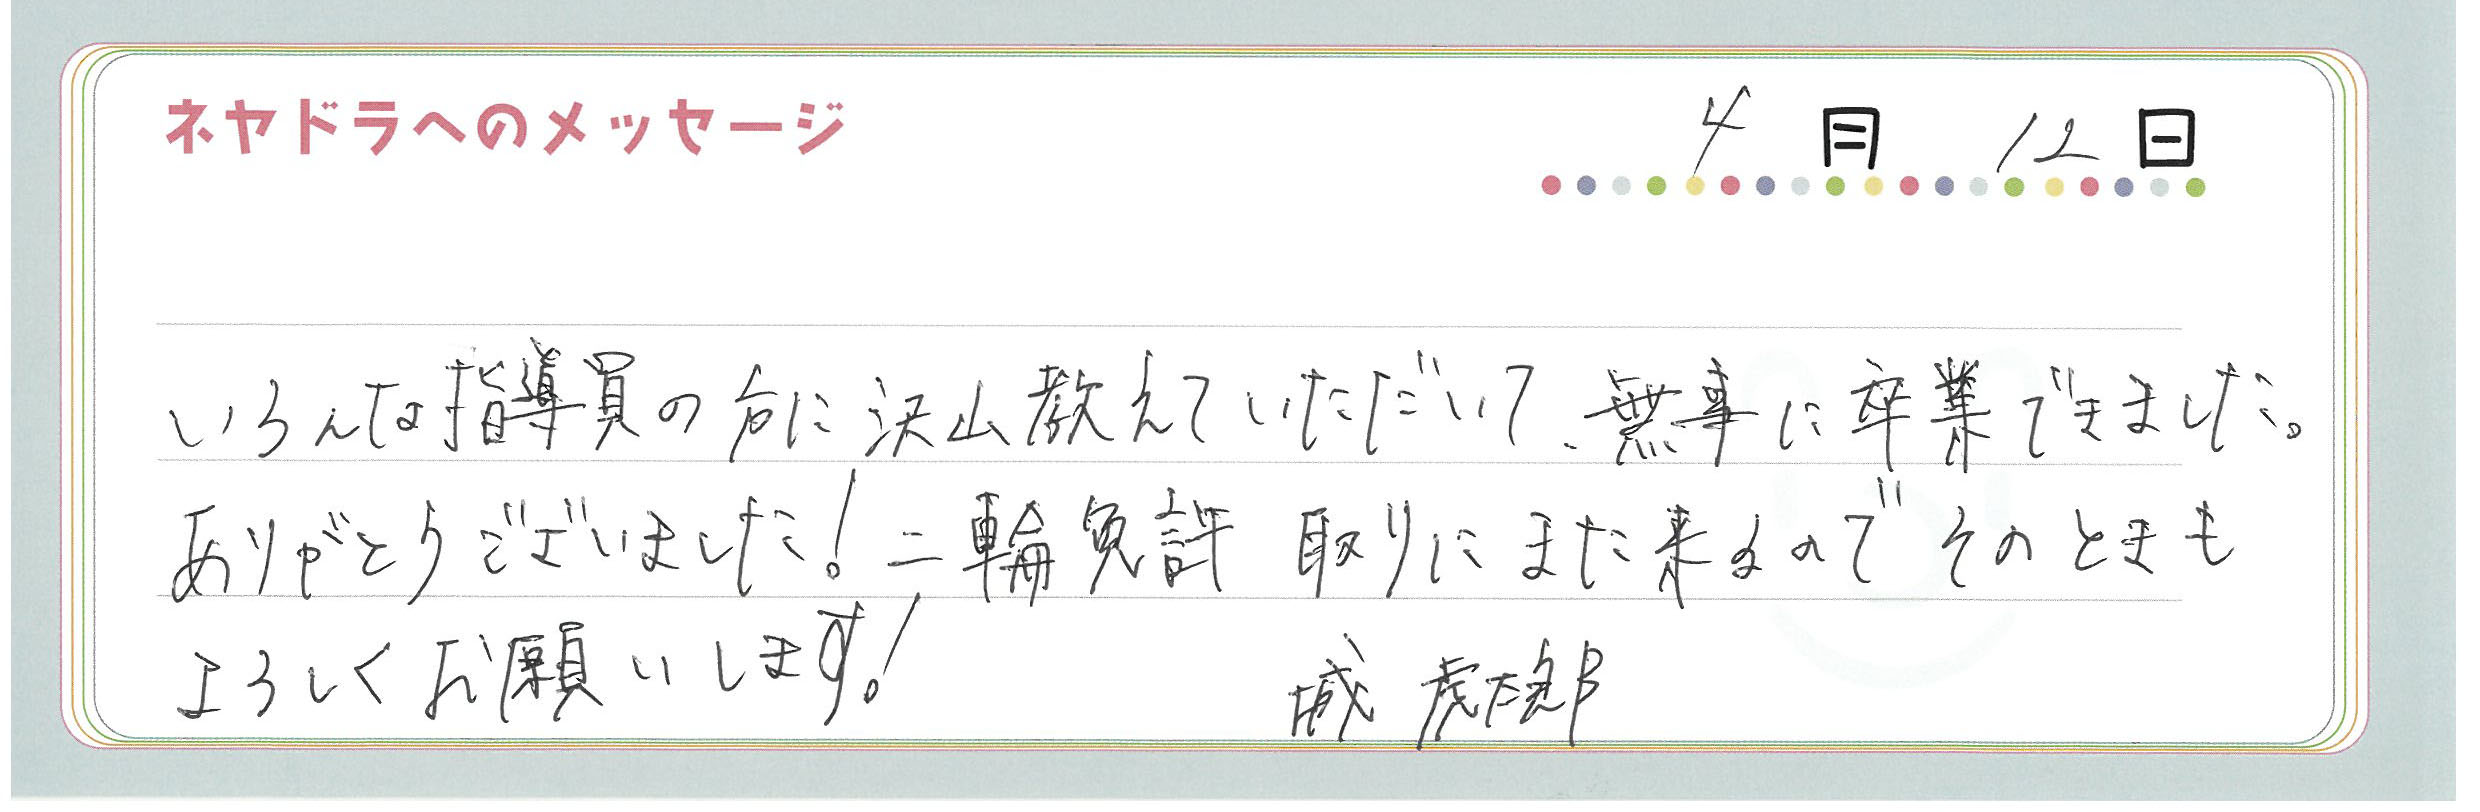 ネヤドラへのメッセージ
4月12日
いろんな指導員の方に沢山教えていただいて、無事に卒業できました。
ありがとうございました!二輪免許 取りにまた来るので そのときも
よろしくお願いします!
城 虎太郎